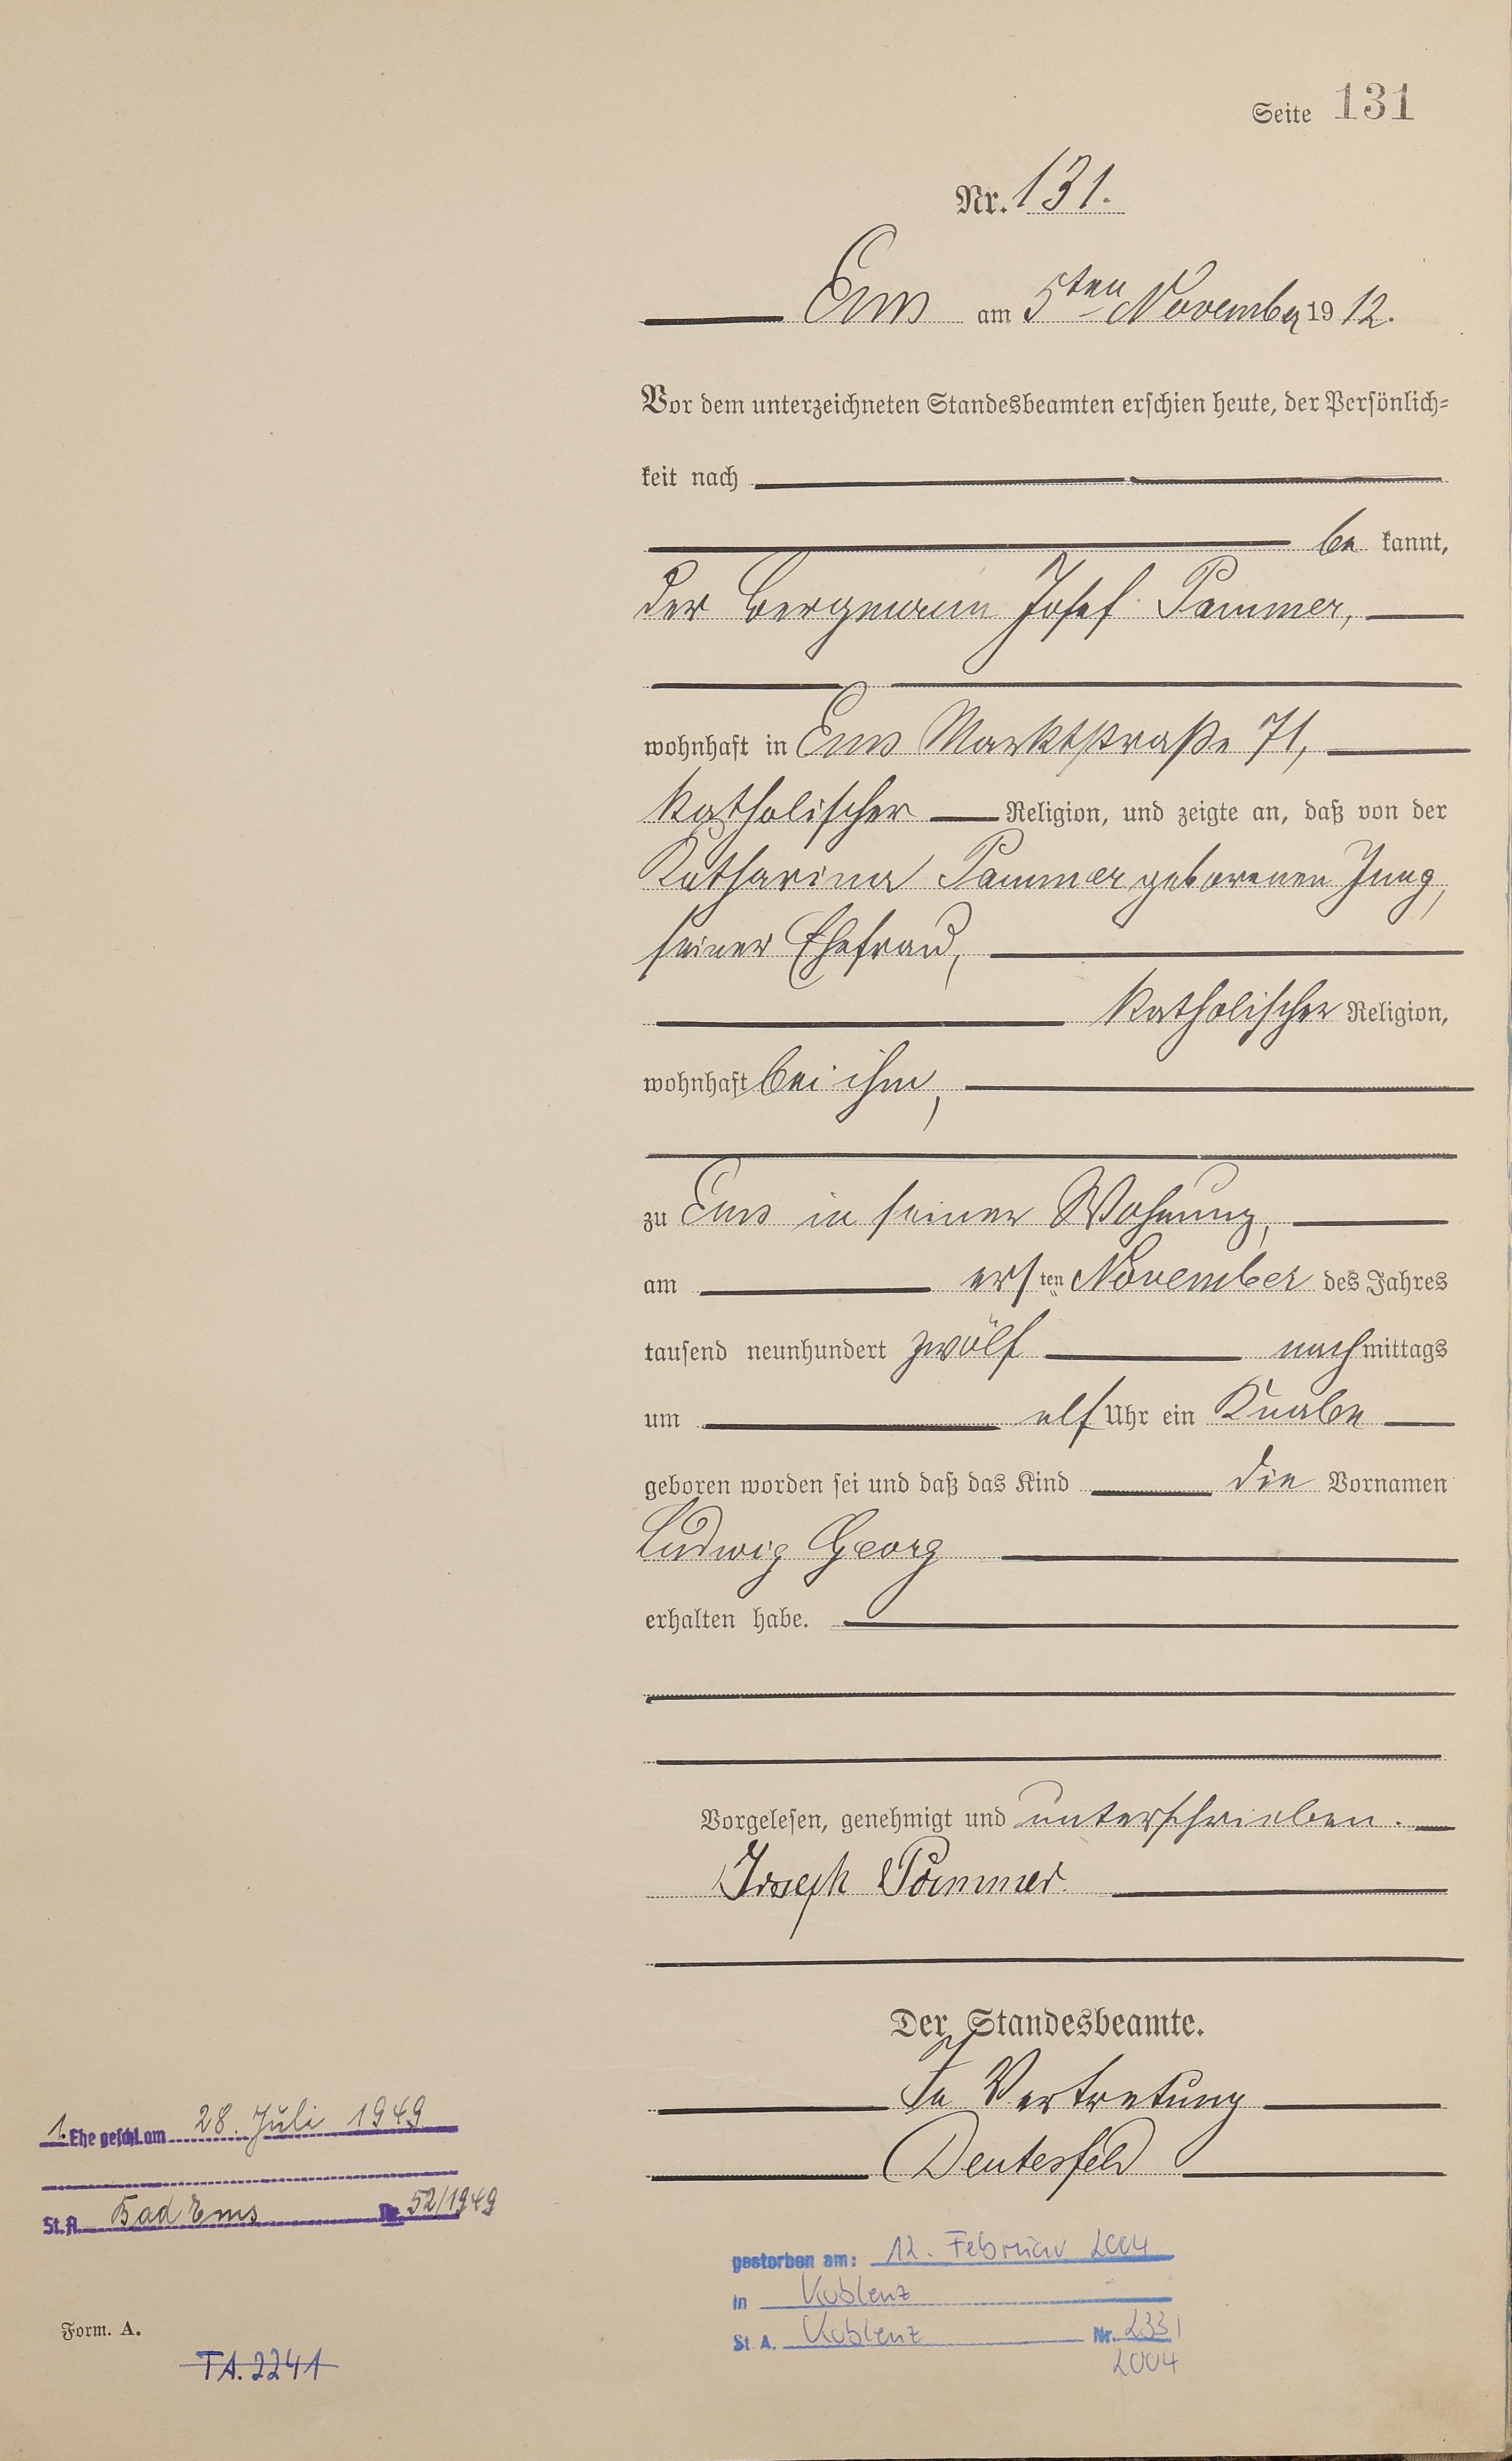 Seite 131
Nr. 131.
Ems am 5ten November 1912.
Vor dem unterzeichneten Standesbeamten erschien heute, der Persönlich-
keit nach
be kannt,
der Bergmann Josef Pammer,
wohnhaft in Ems Marktstraße 71,
katholischer Religion, und zeigte an, daß von der
Katharina Pammer geborenen Jung,
seiner Ehefrau,
katholischer Religion,
wohnhaft bei ihm,
zu Ems in seiner Wohnung,
am ersten November des Jahres
tausend neunhundert zwölf nachmittags
um elf Uhr ein Knabe
geboren worden sei und daß das Kind die Vornamen
Ludwig Georg
erhalten habe.
Vorgelesen, genehmigt und unterschrieben.
Joseph Pammer
Der Standesbeamte.
In Vertretung
Deutesfeld
1. Ehe geschl. am 28. Juli 1949
St. A. Bad Ems Nr. 52/1949
gestorben am: 12. Februar 2004
in Koblenz
St. A. Koblenz Nr. 233/
2004
Form. A.
TA. 2241